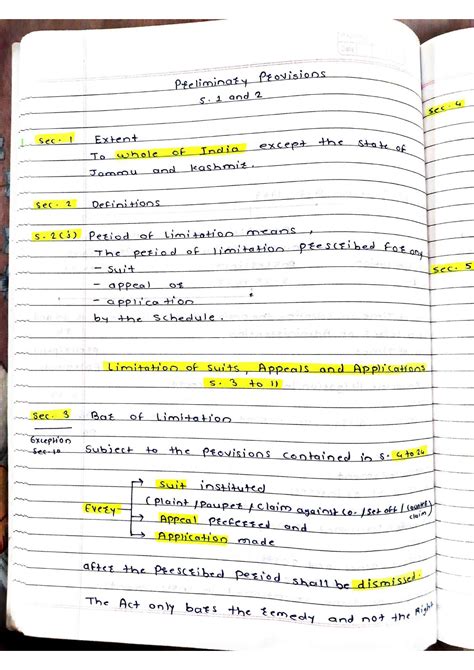 Preliminary Provisions
S. 1 and 2
Sec. 1 Extent
To whole of India except the State of
Jammu and Kashmir.
Sec. 2 Definitions
S. 2(j) Period of limitation means,
The period of limitation prescribed for any
- suit
- appeal or
- application
by the schedule.
Limitation of Suits, Appeals and Applications
S. 3 to 11
Sec. 3 Bar of Limitation
Exception
Sec-10
Subject to the provisions contained in S. 4 to 24
Suit instituted
(plaint/pauper/claim against co-/set off/counter
claim)
Every
Appeal preferred and
Application made
after the prescribed period shall be dismissed.
The Act only bars the remedy and not the Right
Sec. 4
Sec. 5